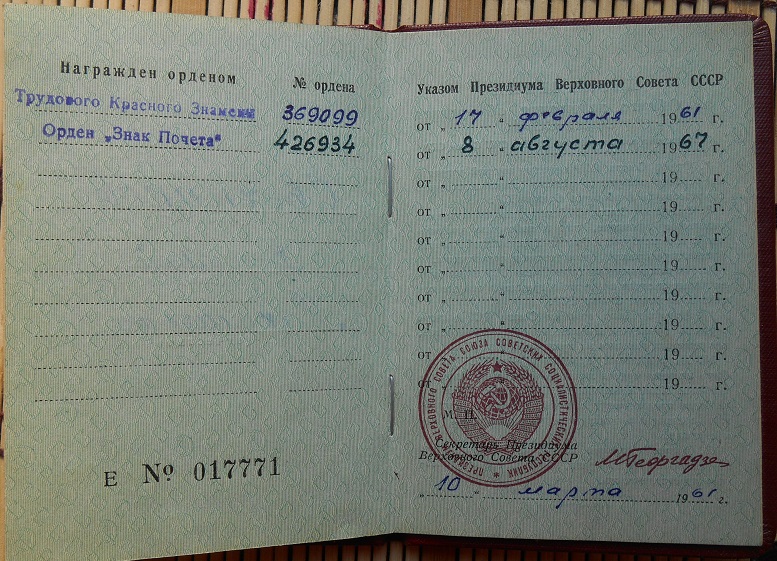 Награжден орденом
№ ордена
Трудового Красного Знамени 369099
Орден „Знак Почета" 426934
Е № 017771
Указом Президиума Верховного Совета СССР
от „ 17 " февраля 1961 г.
от „ 8 " августа 1967 г.
от „ " 19 г.
от „ " 19 г.
от „ " 19 г.
от „ " 19 г.
от „ " 19 г.
от „ " 19 г.
от „ " 19 г.
от „ " 19 г.
ПРЕЗИДИУМ ВЕРХОВНОГО СОВЕТА СОЮЗА СОВЕТСКИХ СОЦИАЛИСТИЧЕСКИХ РЕСПУБЛИК
М. П.
Секретарь Президиума
Верховного Совета СССР
МГеоргадзе
„ 10 " марта 1961 г.